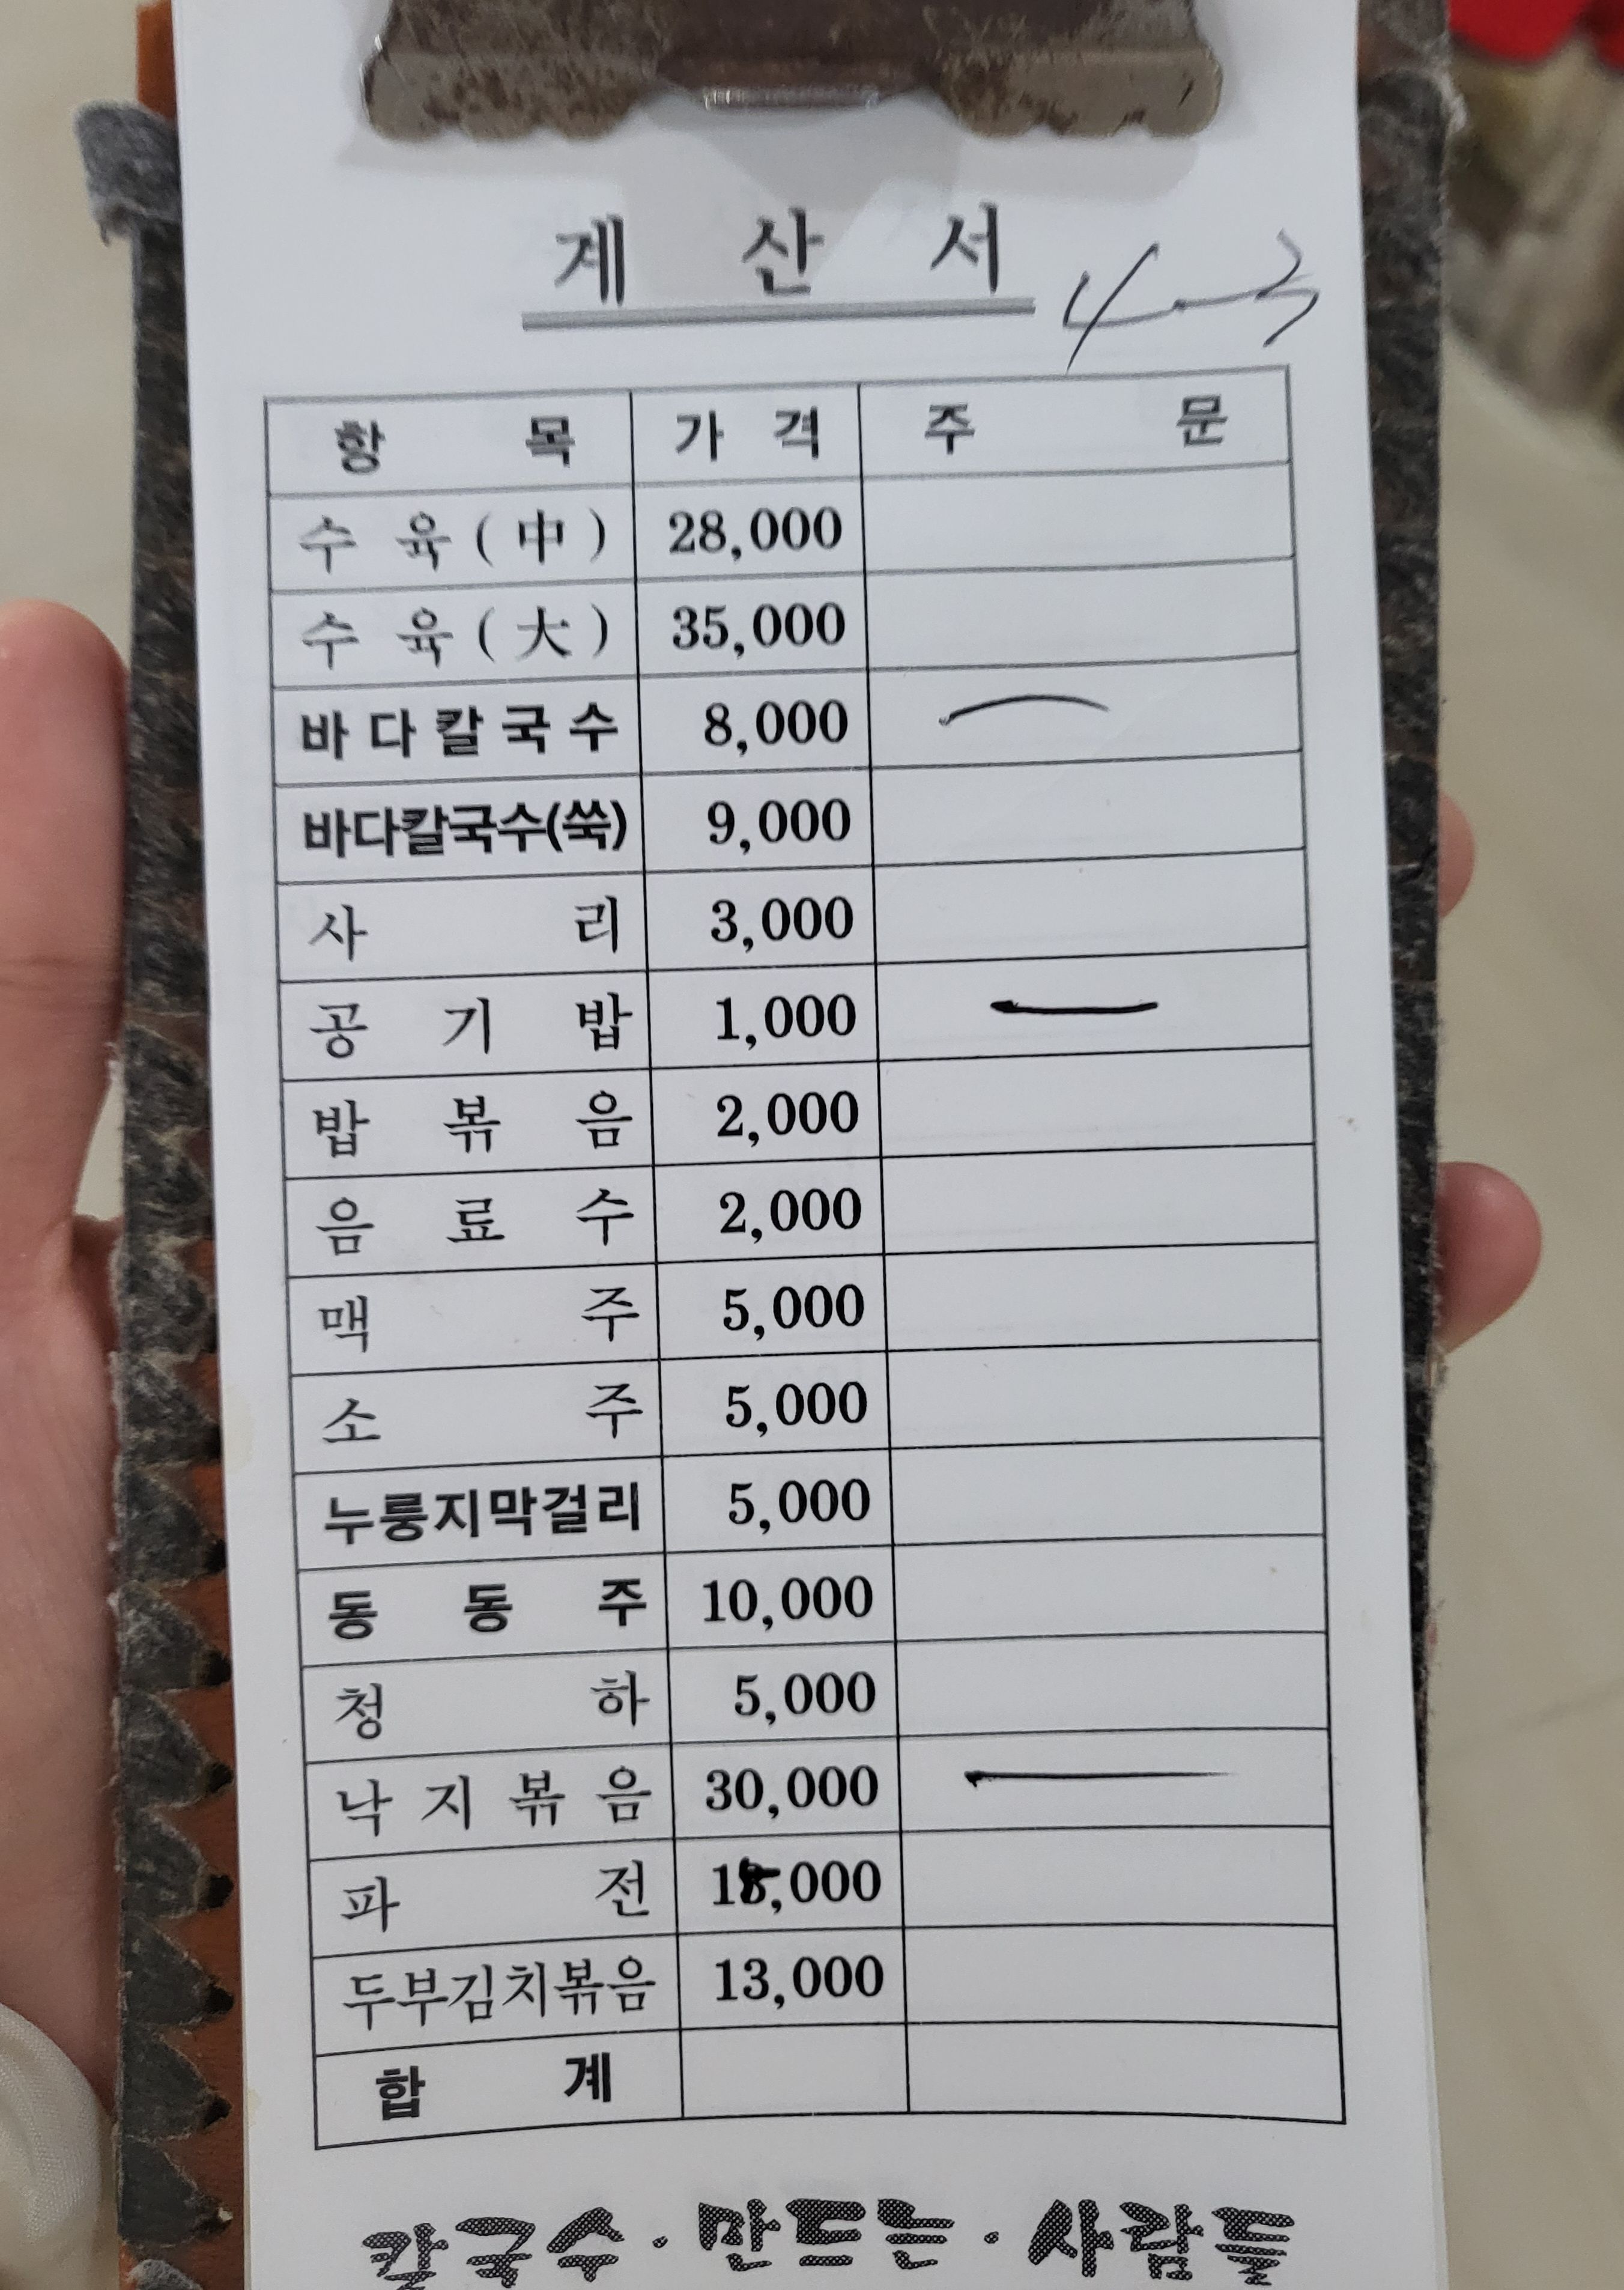 계 산 서 4-3
항 목 가 격 주 문
수 육 ( 中 ) 28,000
수 육 ( 大 ) 35,000
바 다 칼 국 수 8,000 一
바다칼국수(쑥) 9,000
사 리 3,000
공 기 밥 1,000 一
밥 볶 음 2,000
음 료 수 2,000
맥 주 5,000
소 주 5,000
누룽지막걸리 5,000
동 동 주 10,000
청 하 5,000
낙 지 볶 음 30,000 一
파 전 15,000
두부김치볶음 13,000
합 계
칼국수·만드는·사람들